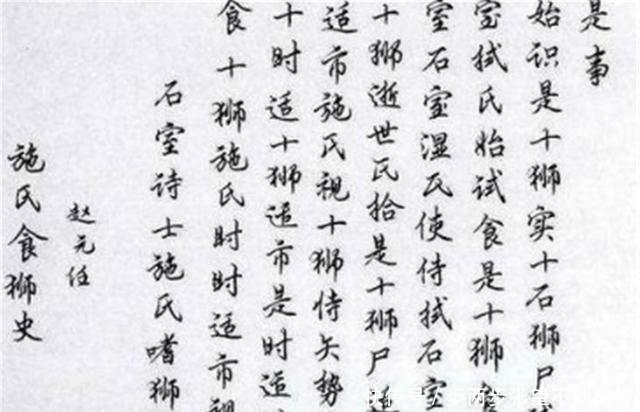 施氏食狮史
赵元任
石室诗士施氏嗜狮
食十狮施氏时时适市视
十时适十狮适市是时适
适市施氏视十狮恃矢势
十狮逝世氏拾是十狮尸
室石室湿氏使侍拭石室
室拭氏始试食是十狮
始识是十狮实十石狮尸
是事